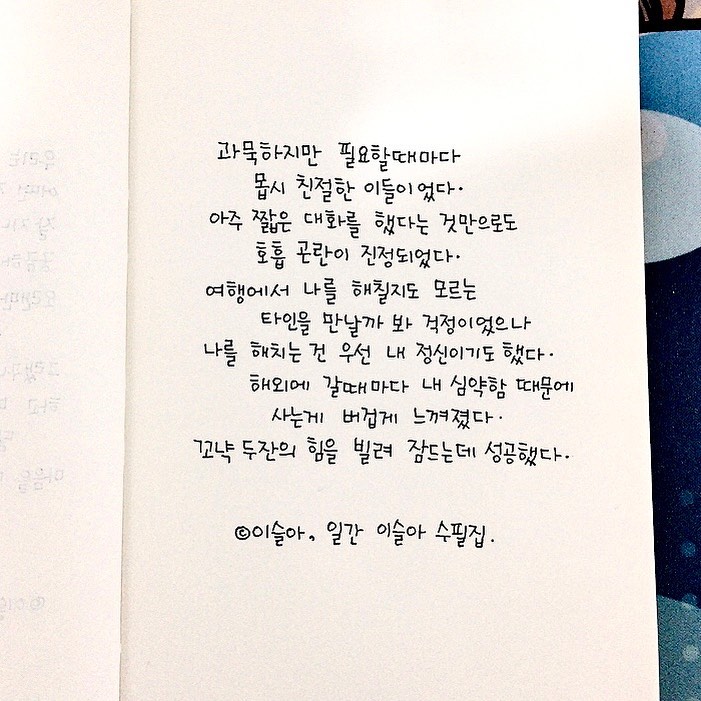 과묵하지만 필요할때마다
몹시 친절한 이들이었다.
아주 짧은 대화를 했다는 것만으로도
호흡 곤란이 진정되었다.
여행에서 나를 해칠지도 모르는
타인을 만날까 봐 걱정이었으나
나를 해치는건 우선 내 정신이기도 했다.
해외에 갈때마다 내 심약함 때문에
사는게 버겁게 느껴졌다.
꼬냑 두잔의 힘을 빌려 잠드는데 성공했다.
©이슬아, 일간 이슬아 수필집.